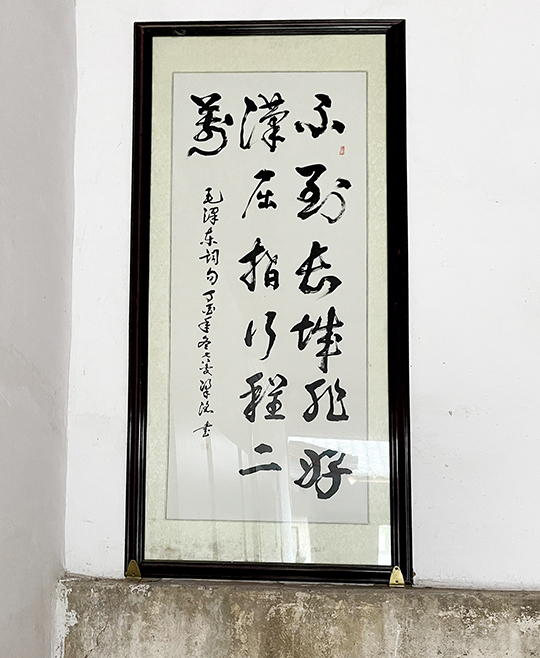 不到长城非好
漢屈指行程二
萬
毛澤东词句丁酉年冬
书